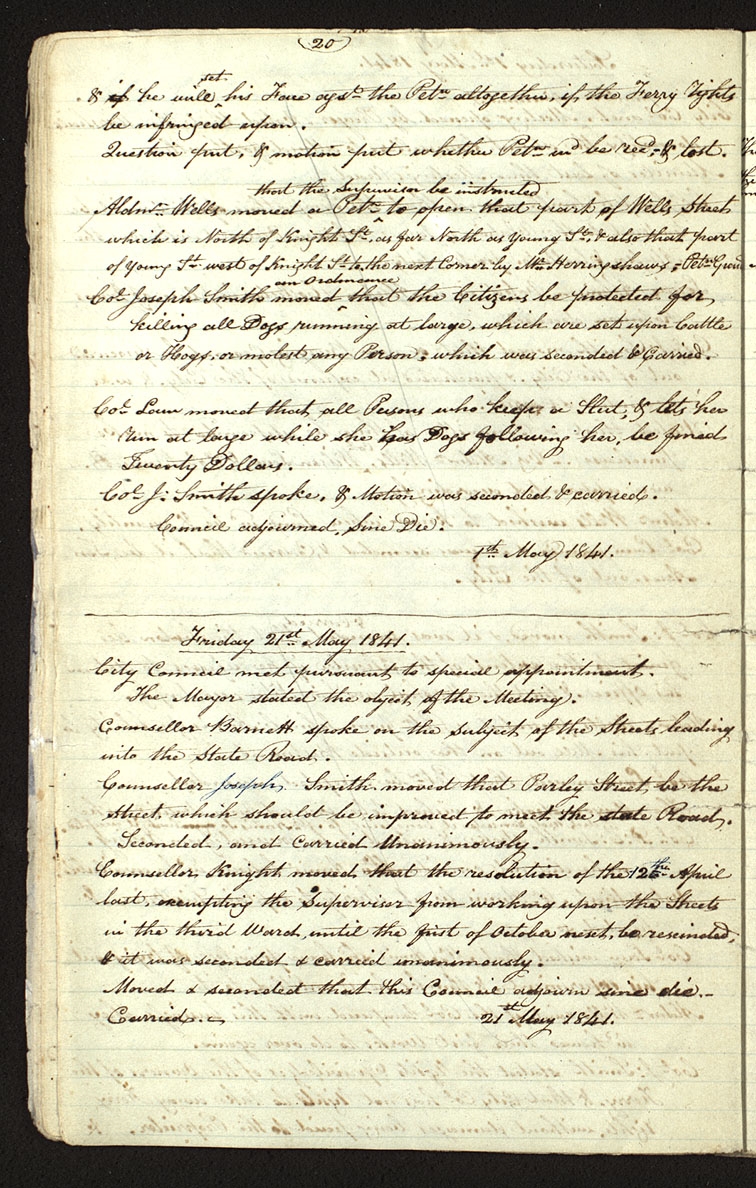 20
& if he will set his Face agst. the Petn. altogether, if the Ferry rights
be infringed upon.
Question put, & motion put whether Petn. wd. be recd.; & lost.
that the Supervisor be instructed
Aldmn. Wells moved a Petn. to open that part of Wells Street
which is North of Knight St., as far North as Young St., & also that part
of Young St. west of Knight St. to the next Corner by Mr. Herringshaws = Petn. Grand
an Ordinance
Col. Joseph Smith moved that the Citizens be protected for
killing all Dogs running at large, which are set upon Cattle
or Hogs, or molest any Person; which was seconded & Carried.
Col. Law moved that all Persons who keep a Slut, & lets her
run at large while she has Dogs following her, be fined
Twenty Dollars.
Col. J. Smith spoke, & Motion was seconded & carried.
Council adjourned, Sine Die.
1st. May 1841.
Friday 21st. May 1841.
City Council met pursuant to special appointment.
The Mayor stated the object of the Meeting.
Counsellor Barnett spoke on the subject of the Streets leading
into the State Road.
Counsellor Joseph Smith moved that Parley Street, be the
street, which should be improved to meet the state Road.
Seconded, and carried Unanimously.
Counsellor Knight moved that the resolution of the 12th April
last, exempting the Supervisor from working upon the Streets
in the third Ward, until the first of October next, be rescinded,
& it was seconded & carried unanimously.
Moved & seconded that this Council adjourn sine die.-
Carried.
21st May 1841.